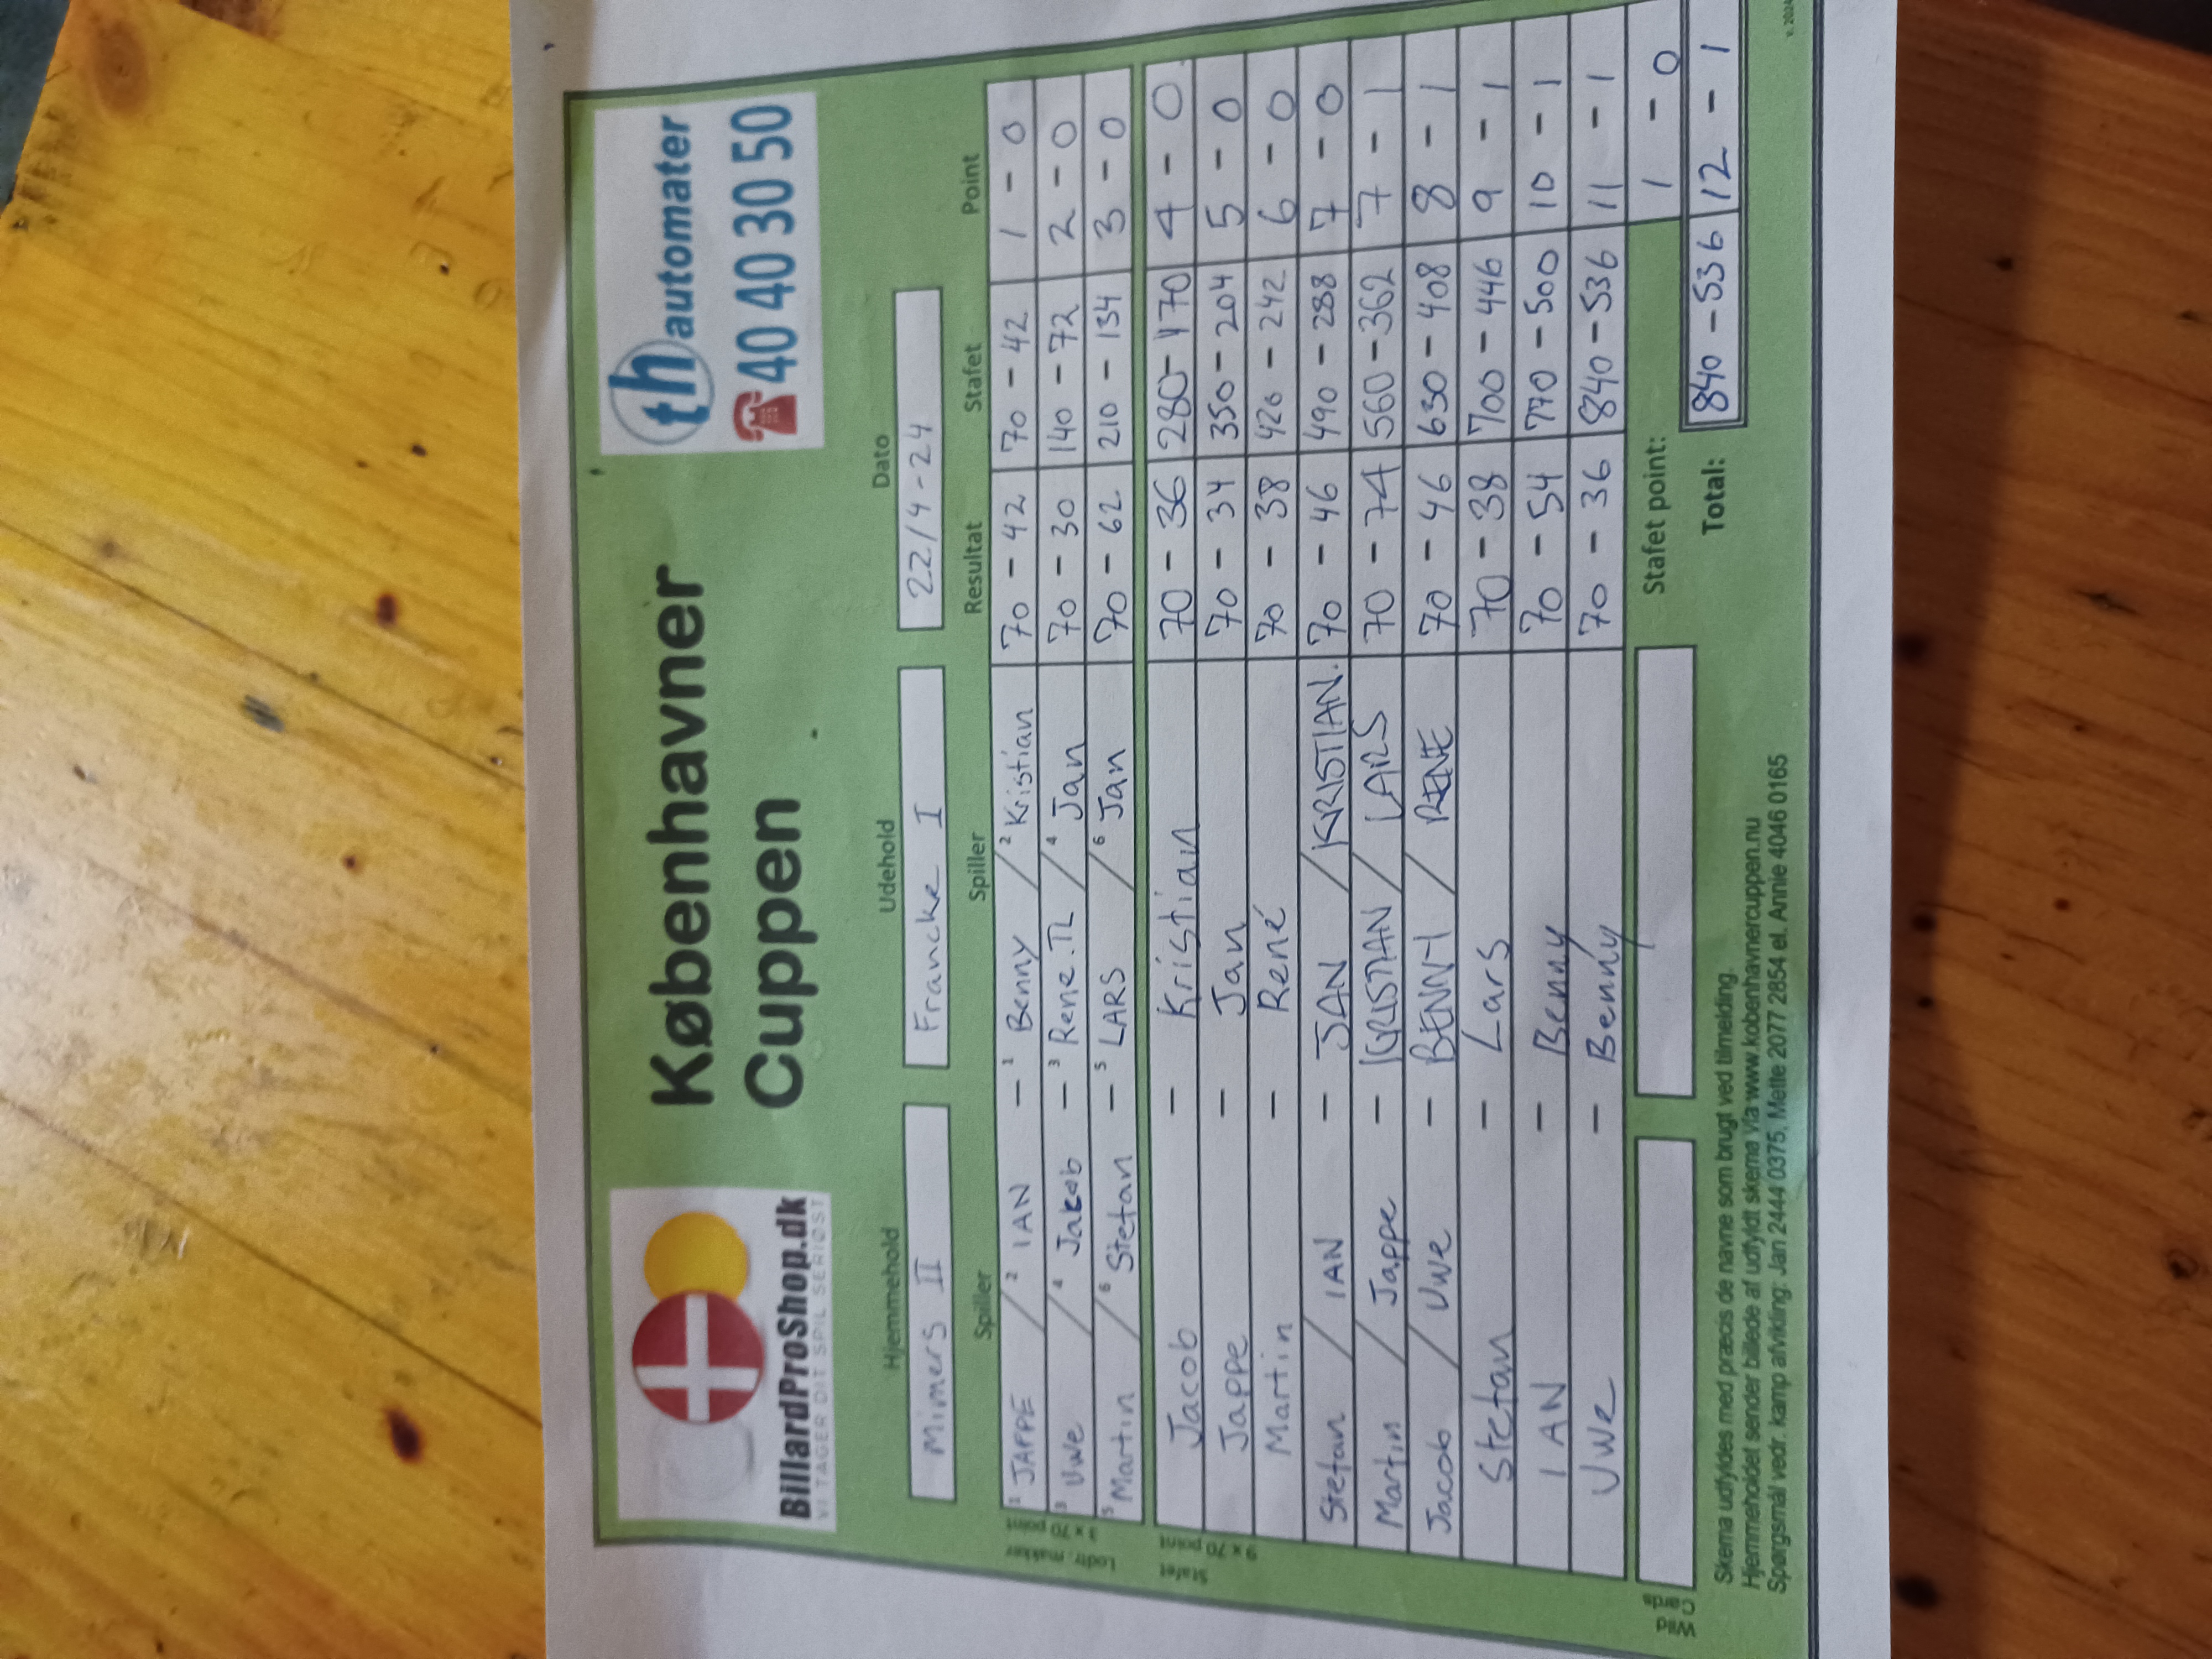 BillardProShop.dk
VI TAGER DIT SPIL SERIØST
Københavner
Cuppen
th automater
40 40 30 50
Hjemmehold Udehold Dato
Mimers II Francke I 22/4-24
Spiller Spiller Resultat Stafet Point
Lodtr. makker
3 x 70 point
1 JAPPE / 2 IAN - 1 Benny / 2 Kristian 70 - 42 70 - 42 1 - 0
3 Uwe / 4 Jakob - 3 Rene.TL / 4 Jan 70 - 30 140 - 72 2 - 0
5 Martin / 6 Stefan - 5 LARS / 6 Jan 70 - 62 210 - 134 3 - 0
Stafet
9 x 70 point
Jacob - Kristian 70 - 36 280 - 170 4 - 0
Jappe - Jan 70 - 34 350 - 204 5 - 0
Martin - René 70 - 38 420 - 242 6 - 0
Stefan / IAN - JAN / KRISTIAN. 70 - 46 490 - 288 7 - 0
Martin / Jappe - KRISTIAN / LARS 70 - 74 560 - 362 7 - 1
Jacob / Uwe - BENNY / RENE 70 - 46 630 - 408 8 - 1
Stefan - Lars 70 - 38 700 - 446 9 - 1
IAN - Benny 70 - 54 770 - 500 10 - 1
Uwe - Benny 70 - 36 840 - 536 11 - 1
Wild
Cards
Stafet point: 1 - 0
Total: 840 - 536 12 - 1
Skema udfyldes med præcis de navne som brugt ved tilmelding.
Hjemmeholdet sender billede af udfyldt skema via www.kobenhavnercuppen.nu
Spørgsmål vedr. kamp afvikling: Jan 2444 0375, Mette 2077 2854 el. Annie 4046 0165
v. 2024